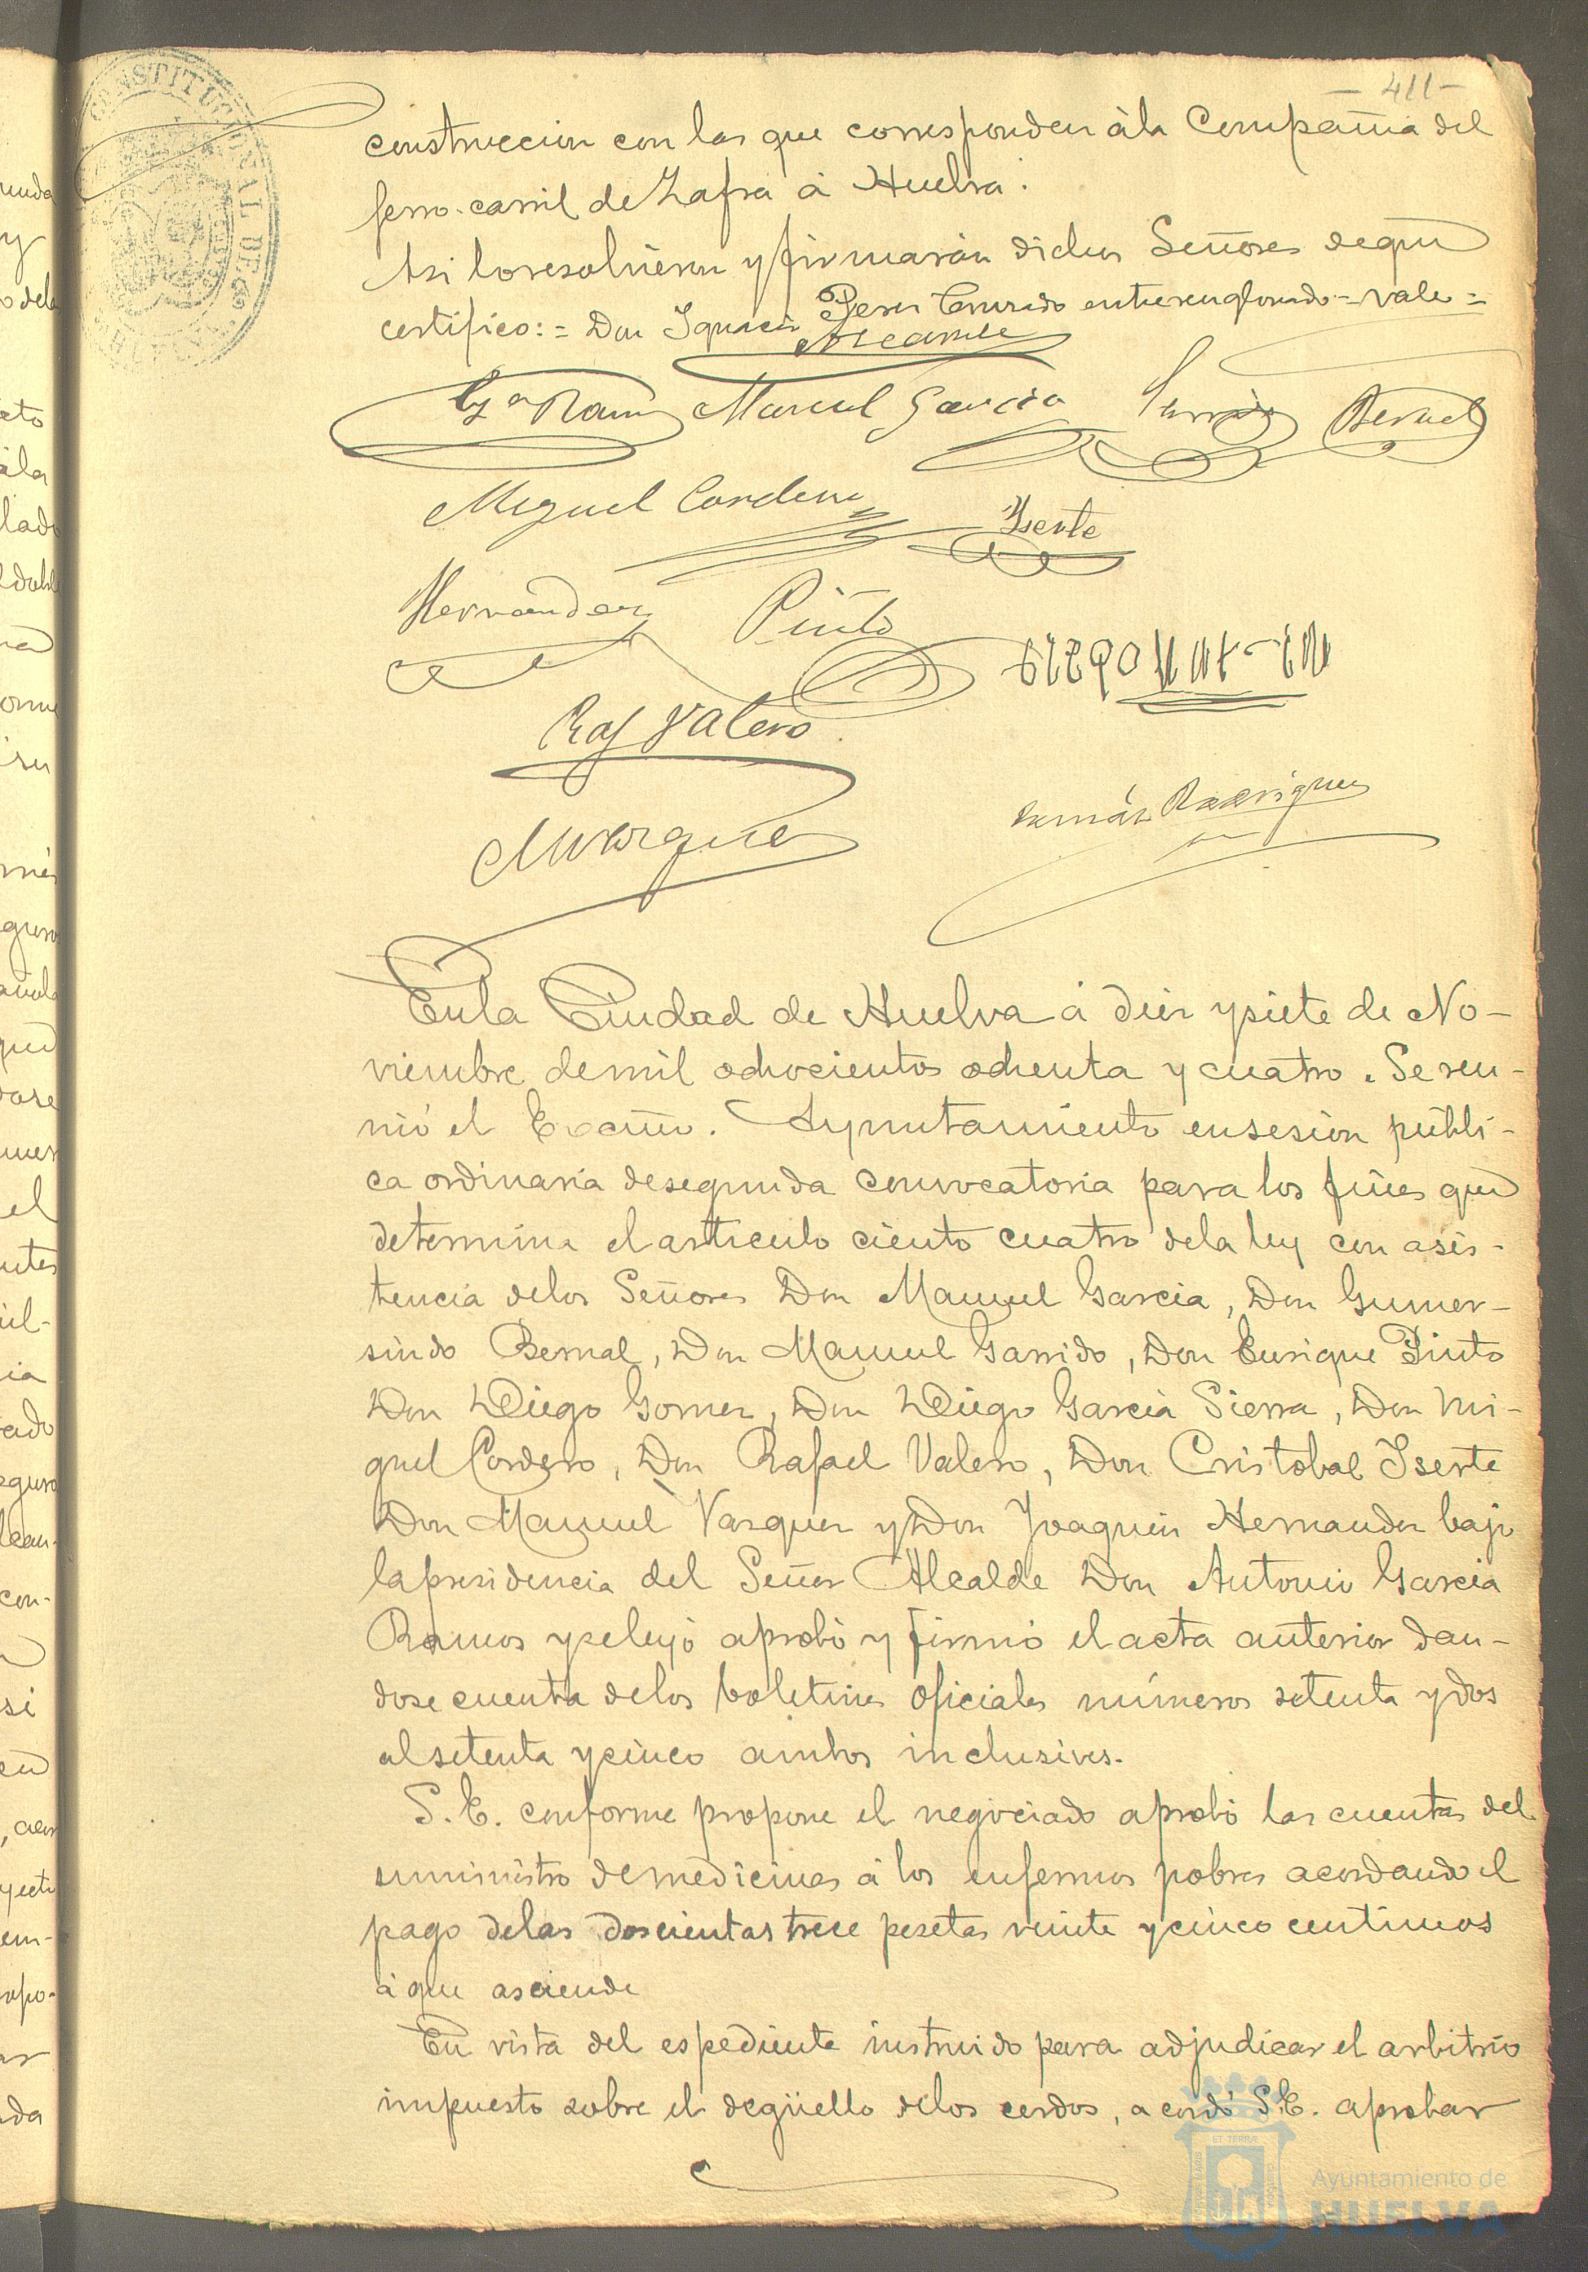 - 411 -
construccion con las que corresponden á la Compañia del
ferro-carril de Zafra á Huelva.
Asi lo resolvieron y firmarán dichos Señores de que
certifico: = Don Ignacio entrerenglonado = vale =
Gª Ramos Manuel Garcia Bernal
Miguel Cordero Iserte
Hernandez Pinto
Raf Valero
Tomás Rodriguez
MVazquez
En la Ciudad de Huelva á diez y siete de No-
viembre de mil ochocientos ochenta y cuatro. Se reu-
nió el Excmo. Ayuntamiento en sesion públi-
ca ordinaria de segunda convocatoria para los fines que
determina el articulo ciento cuatro de la ley con asis-
tencia de los Señores Don Manuel Garcia, Don Gumer-
sindo Bernal, Don Manuel Garrido, Don Enrique Pinto
Don Diego Gomez, Don Diego Garcia Sierra, Don Mi-
guel Cordero, Don Rafael Valero, Don Cristobal Iserte
Don Manuel Vazquez y Don Joaquin Hernandez bajo
la presidencia del Señor Alcalde Don Antonio Garcia
Ramos y se leyó aprobó y firmó el acta anterior dan-
dose cuenta de los boletines oficiales números setenta y dos
al setenta y cinco ambos inclusives.
S. E. conforme propone el negociado aprobó las cuentas del
suministro de medicinas á los enfermos pobres acordando el
pago de las doscientas trece pesetas veinte y cinco centimos
á que asciende
En vista del espediente instruido para adjudicar el arbitrio
impuesto sobre el degüello de los cerdos, acordó S.E. aprobar
Ayuntamiento de
HUELVA